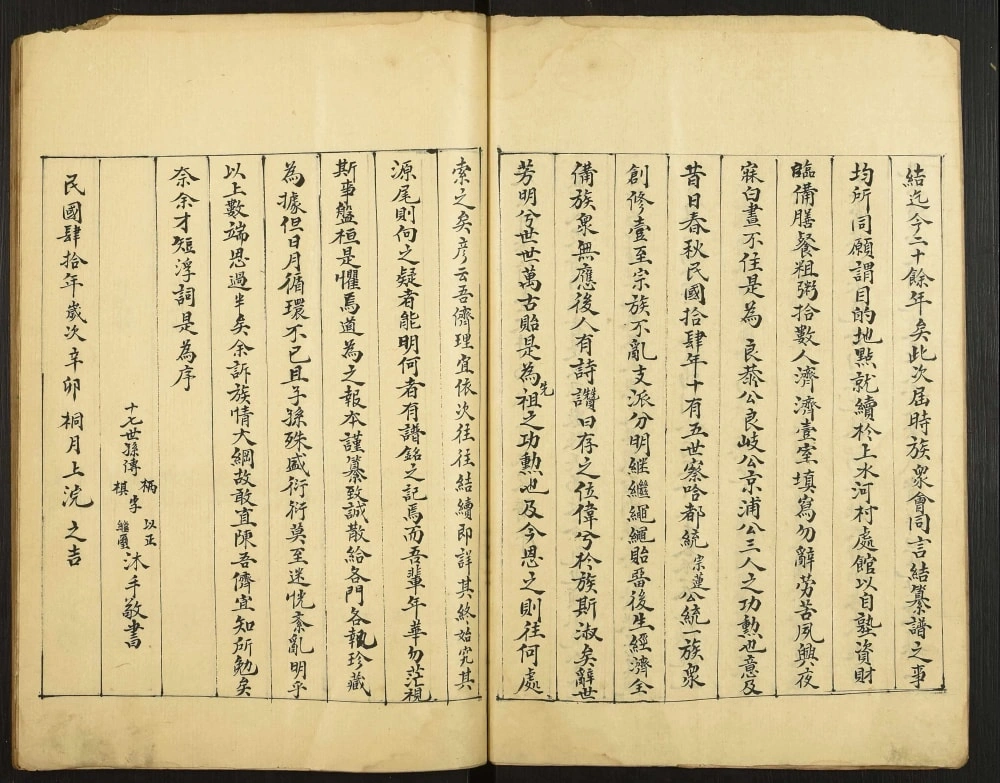 結迄今二十餘年矣此次屆時族衆會同言結纂譜之事
均所同願謂目的地點就續於上水河村處館以自塾資財
臨備膳餐粗粥拾數人濟濟壹室填寫勿辭勞苦夙興夜
寐白晝不住是為 良恭公良岐公京浦公三人之功勲也意及
昔日春秋民國拾肆年十有五世察哈都統宗蓮公統一族衆
創修壹至宗族不亂支派分明継繼繩繩貽畱後生經濟全
備族衆無應後人有詩讚曰存之位偉兮於族斯淑矣辭世
芳明兮世世萬古貽是為先祖之功勲也及今思之則往何處
索之矣彥云吾儕理宜依次往往結續即詳其終始究其
源尾則向之疑者能明何者有譜銘之記焉而吾輩年華勿茫視
斯事盤桓是懼焉道為之報本謹纂致誠散給各門各執珍藏
為據但日月循環不已且子孫殊盛衍衍莫至迷恍紊亂明乎
以上數端思過半矣余訴族情大綱故敢直陳吾儕宜知所勉矣
奈余才短浮詞是為序
十七世孫傳 柄 棋 字 以正 繼 沐手敬書
民國肆拾年歲次辛卯 桐月上浣之吉